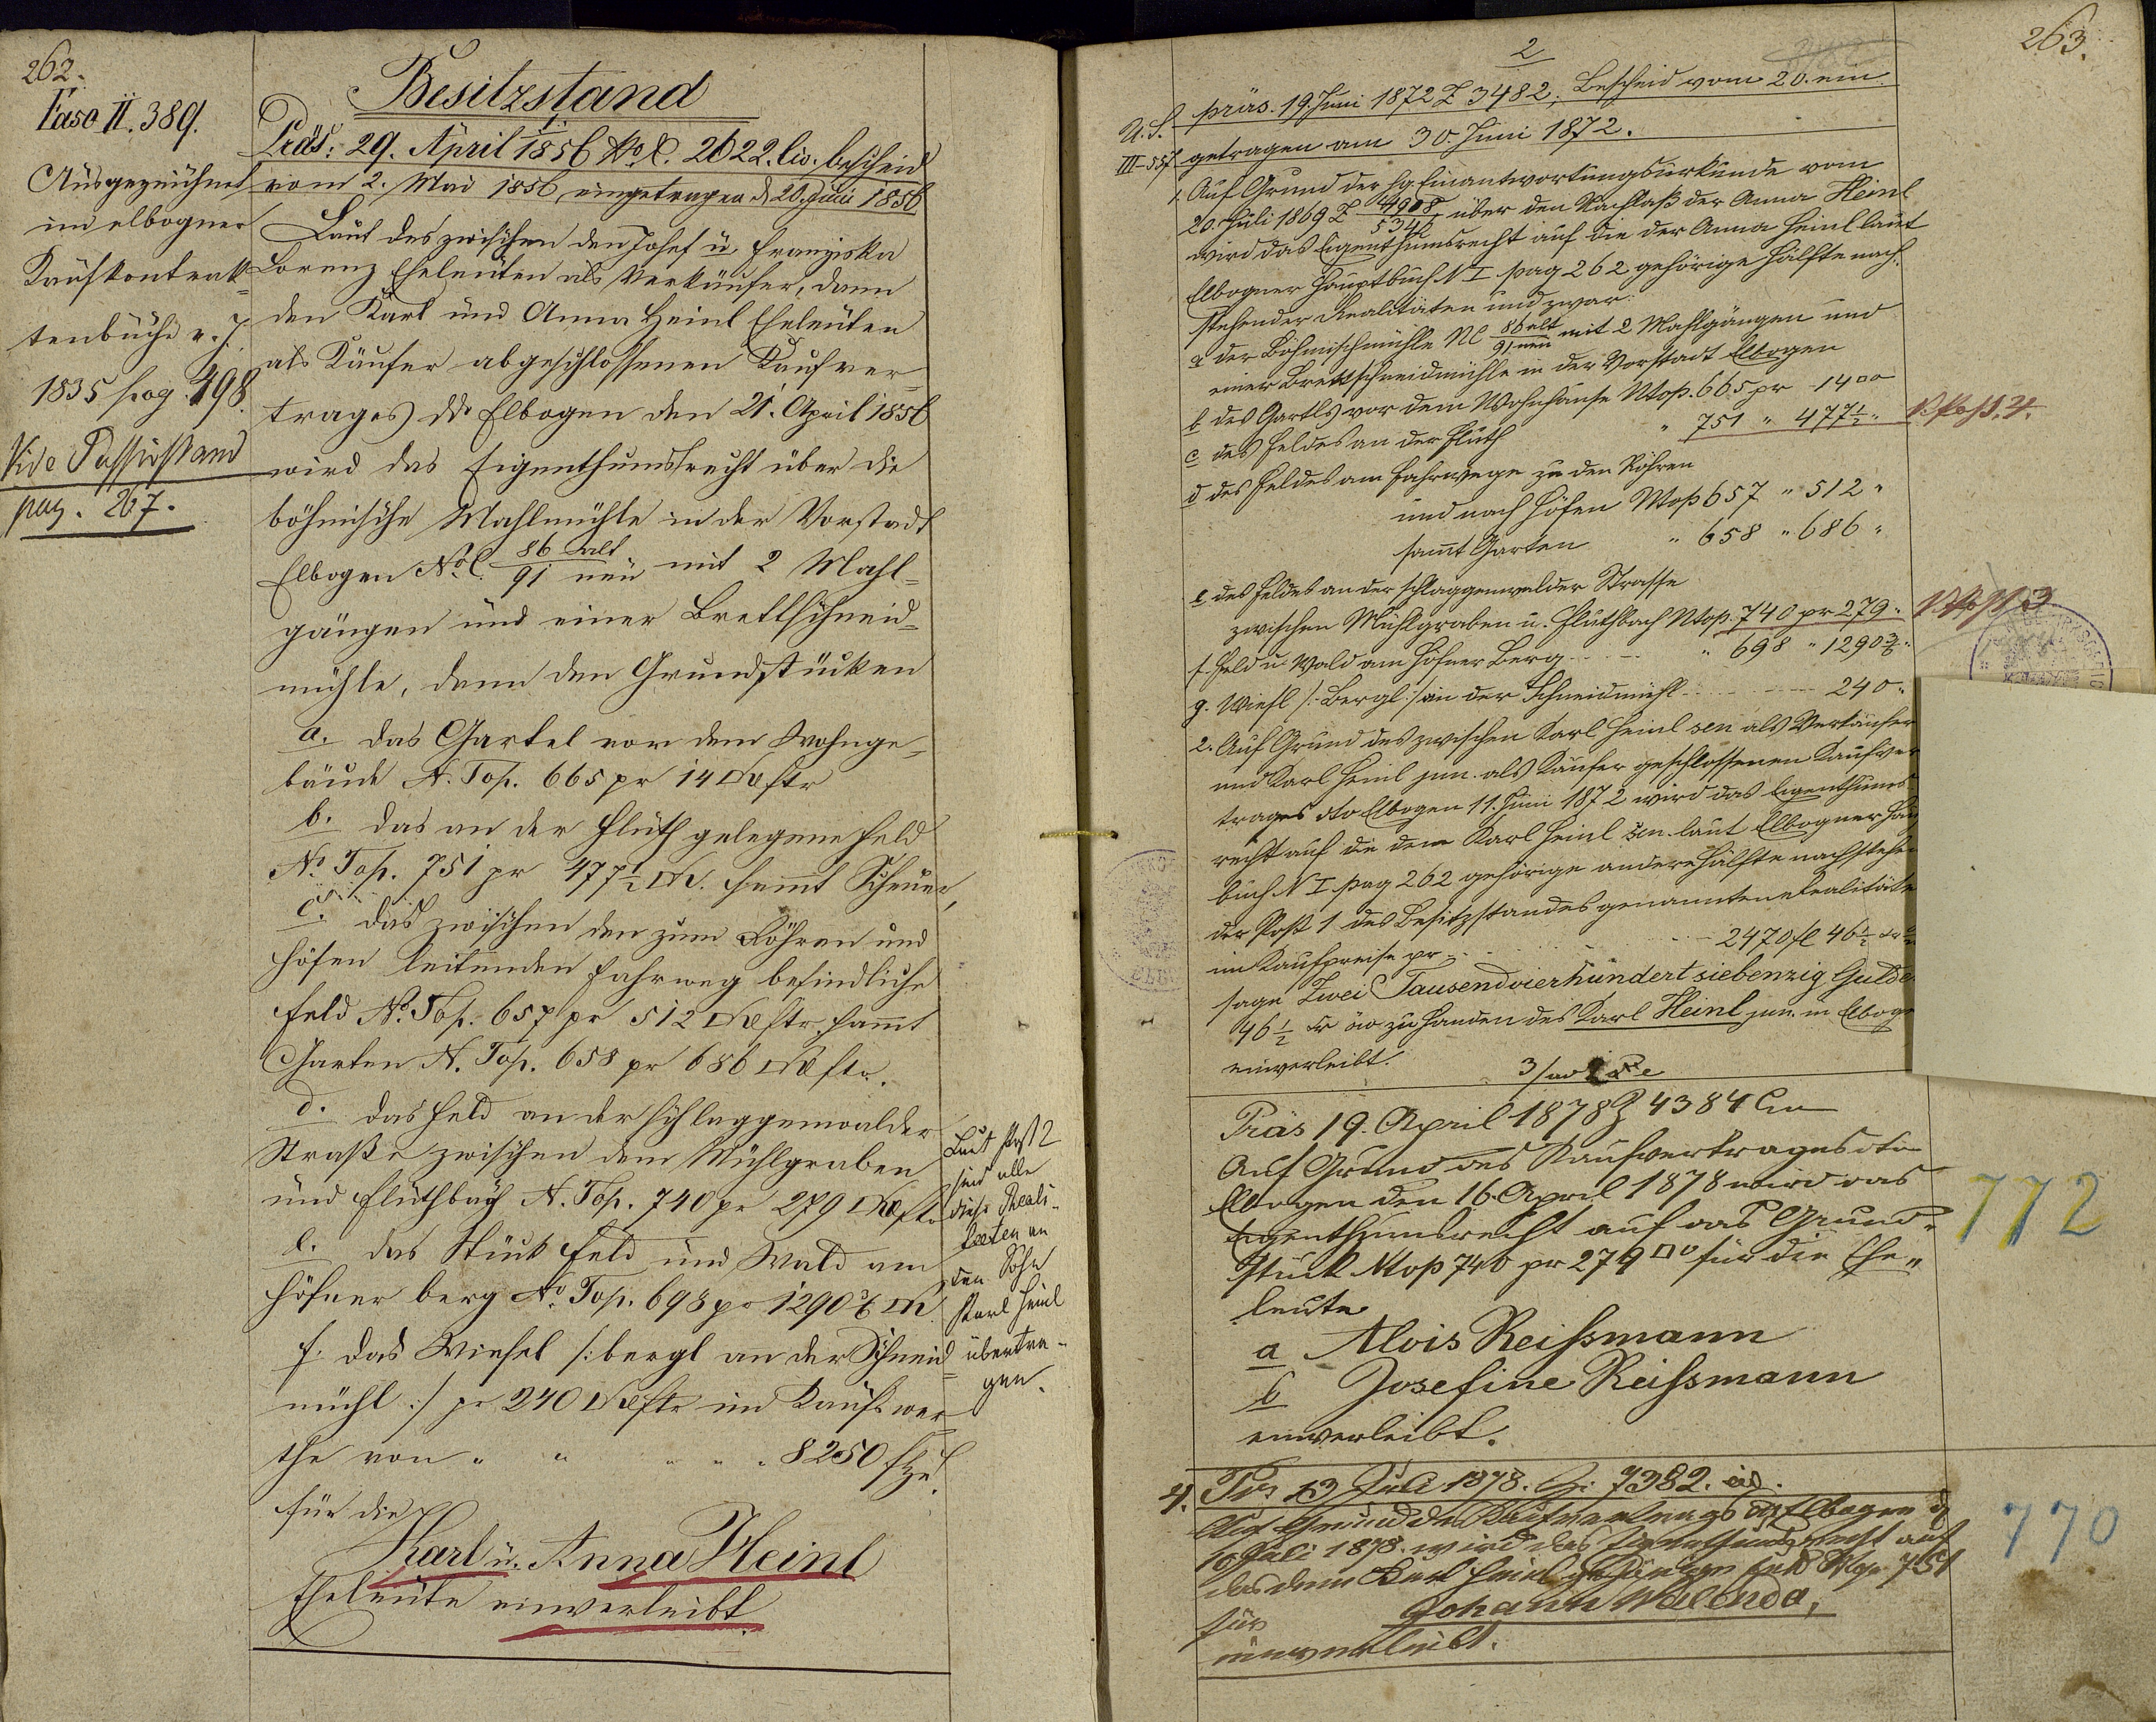 262.
Fasc II. 389.
Ausgezeichnet
im elbogner
Kaufkontrak=
tenbuche v. J.
1835 pag. 498.
Vide Passivstand
pag. 267.
Besitzstand
1.
Präs: 29. April 1856 No. E. 2622. civ. bescheid
vom 2. Mai 1856, eingetragen d 20. Juni 1856
Laut des zwischen den Josef u. Franziska
Lorenz Eheleuten als Verkäufer, dann
den Karl und Anna Heinl Eheleuten
als Käufer abgeschlossenen Kaufver=
trages ddo Elbogen den 21. April 1856
wird das Eigenthumsrecht über die
böhmische Mahlmühle in der Vorstadt
Elbogen No C. 86 alt / 91 neu mit 2 Mahl=
gängen und einer Brettschneid=
mühle, dann den Grundstücken
a. das Gartel vor dem Wohnge=
bäude N. Top. 665 pr 14 □Klftr
b. das an der Fluth gelegene Feld
No. Top. 751 pr 477½ □Kl. sammt Scheuer,
c. das zwischen den zum Röhren und
Höfen leitenden Fahrweg befindliche
Feld No. Top. 657 pr 512 □Klftr. sammt
Garten N. Top. 658 pr 686 □Klftr.
d. das Feld an der Schlaggenwalder
Straße zwischen dem Mühlgraben
und Fluthbach N. Top. 740 pr 279 □Klftr
e. das Stück Feld und Wald am
Höfner berg No Top. 698 pr 1290 3/6 □Kl
f. das Wiesel /: bergl an der Schneid=
mühl :/ pr 240 □Klftr im Kaufswer
the von " " " " " 8250 f
für die
Karl u. Anna Heinl
Eheleute einverleibt.
Laut Post 2
sind alle
diese Reali-
täten an
den Sohn
Karl Heinl
übertra-
gen.
263.
2
U. S. präs. 19. Juni 1872 Z 3482, Bescheid vom 20. ein
III-557 getragen am 30. Juni 1872.
1. Auf Grund der hg. Einantwortungsurkunde vom
20. Juli 1869 Z 4908 / 5342 über den Nachlaß der Anna Heinl
wird das Eigenthumsrecht auf die der Anna Heinl laut
Elbogner Hauptbuch N I pag 262 gehörige Hälfte nach
stehender Realitäten und zwar:
a der Böhmischmühle NC 86 alt / 91 neu mit 2 Mahlgängen und
einer Brettschneidmühle in der Vorstadt Elbogen
b des Gartls vor dem Wohnhause Ntop. 665 pr 14 □°
c des Feldes an der Fluth " 751 " 477½ " P. Post. 4.
d des Feldes am Fahrwege zu den Röhren
und nach Höfen Ntop 657 " 512 "
sammt Garten " 658 " 686 "
e des Feldes an der Schlaggenwalder Strasse
zwischen Mühlgraben u. Fluthbach Ntop. 740 pr 279 " P. Post 3
f. Feld u. Wald am Höfner Berg " 698 " 1290 3/6 "
g. Wiesl /: Bergl :/ an der Schneidmühl 240 "
2. Auf Grund des zwischen Karl Heinl sen als Verkäufer
und Karl Heinl jun. als Käufer geschlossenen Kaufver
trages dto Elbogen 11. Juni 1872 wird das Eigenthums
recht auf die dem Karl Heinl sen. laut Elbogner Hau
buch N I pag 262 gehörige andere Hälfte nachstehe
der Post 1 des Besitzstandes genannten Realitäte
im Kaufpreise pr 2470 fl 46½ xr
sage Zwei Tausendvierhundert siebenzig Gulde
46½ xr öw zu Handen des Karl Heinl jun. in Elboge
einverleibt.
Präs 19. April 1878 Z 4384 Civ
Auf Grund des Kaufvertrages dto
Elbogen den 16. April 1878 wird das
Eigenthumsrecht auf das Grund=
stück Ntop 740 pr 279 □° für die Ehe=
leute
a Alois Reissmann
b Josefine Reissmann
einverleibt.
772
4. Prs 13 Juli 1878. Z. 7382. civ.
Auf Grund des Kaufvertrags dto Elbogen d
10 Juli 1878. wird das Eigenthumsrecht auf
das dem Karl Heinl gehörige Feld Ntop. 751
für Johann Walenda,
einverleibt.
770